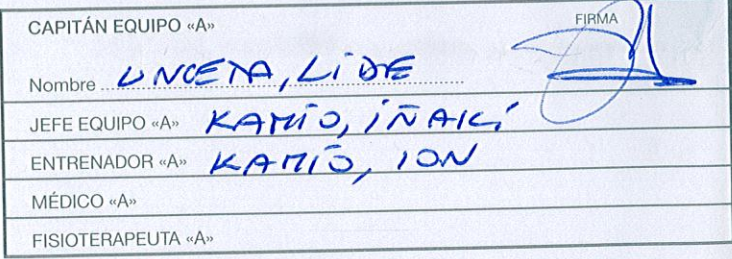 CAPITÁN EQUIPO «A» FIRMA
Nombre UNCETA, LiDE
JEFE EQUIPO «A» KAMÍO, iÑAKi
ENTRENADOR «A» KAMÍO, ION
MÉDICO «A»
FISIOTERAPEUTA «A»